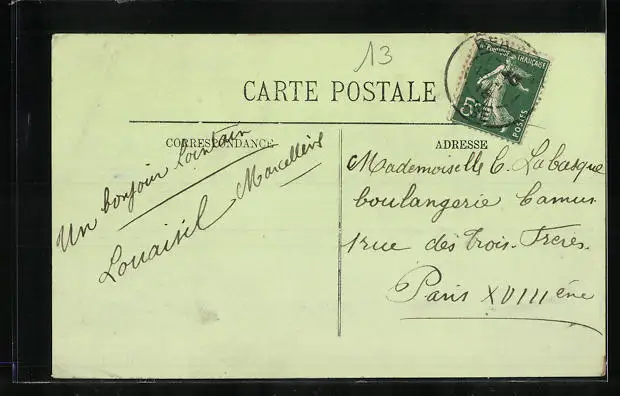 13
CARTE POSTALE
RÉPUBLIQUE FRANÇAISE
5c
POSTES
CORRESPONDANCE
Un bonjour lointain
Marcelleis
ADRESSE
Mademoiselle C. Labasque
boulangerie Camus
1 rue des trois-Frères.
Paris XVIII ène